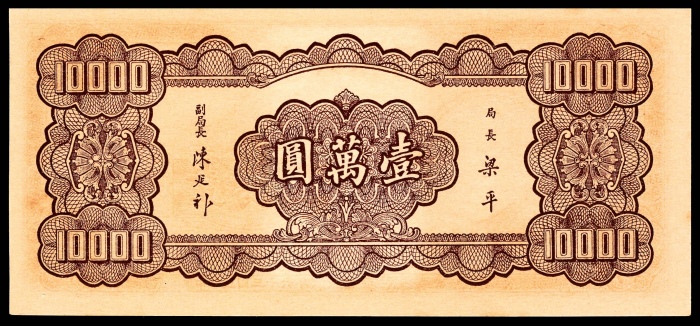 10000
10000
圓萬壹
局長
梁平
副局長
陳延祚
10000
10000